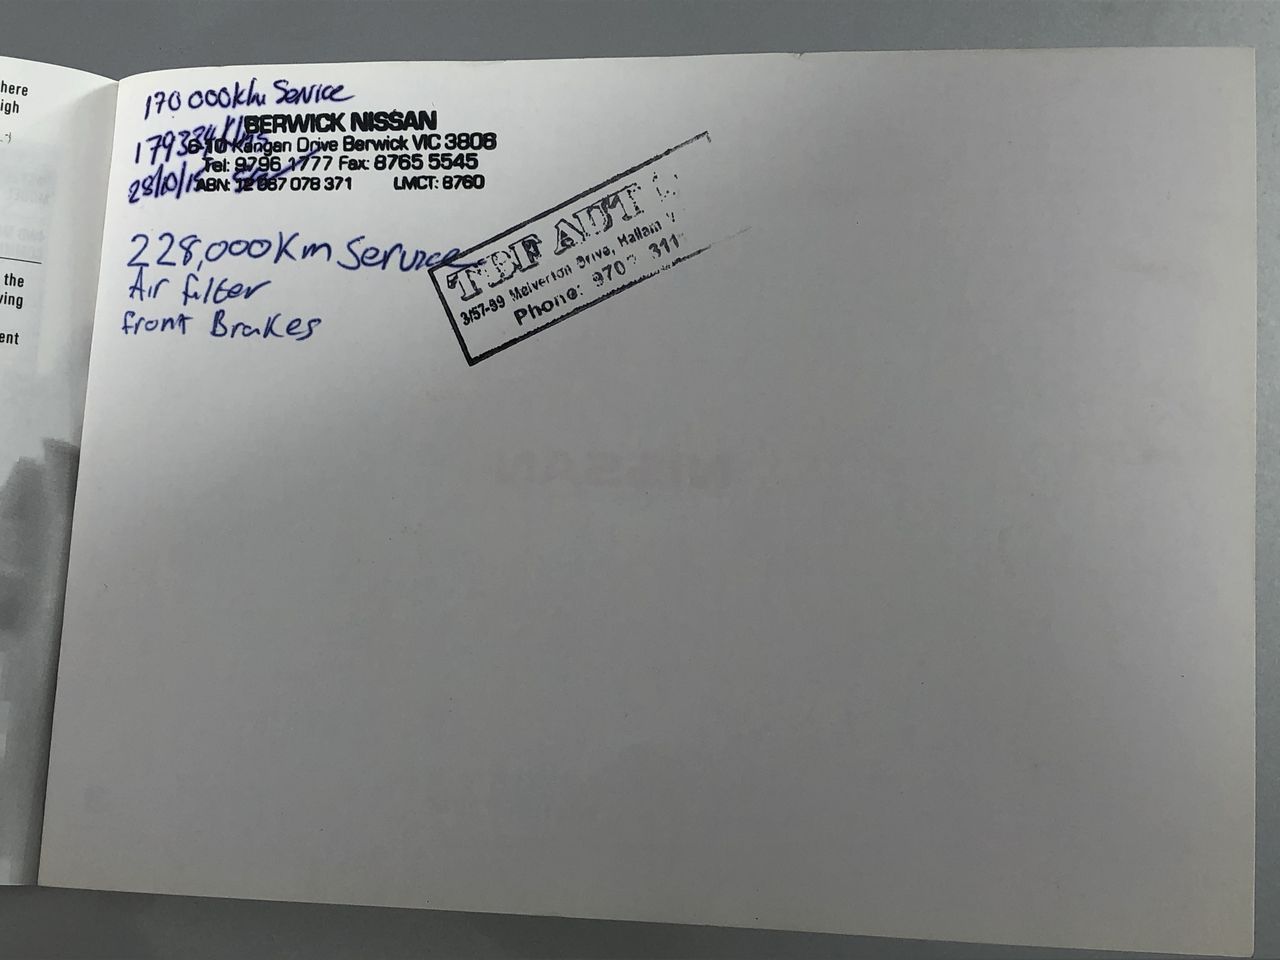 here
igh
the
ving
ent
170 000km Service
179334kms
28/10/15
BERWICK NISSAN
6-10 Kangan Drive Berwick VIC 3806
Tel: 9796 1777 Fax: 8765 5545
ABN: 12 087 078 371 LMCT: 8760
228,000Km Service
Air filter
front Brakes
AUT
3/57-99 Melverton Drive, Hallam V
Phone: 970 311
NISSAN